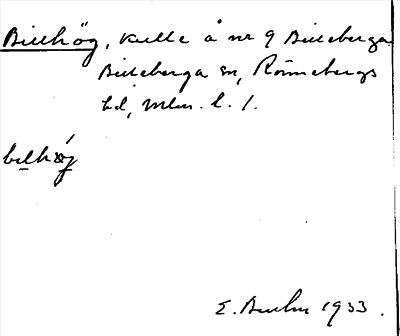 Billhög, kulle å nr 9 Billeberga
Billeberga sn, Rönnebergs
hd, Mlm. l. /.
E. Bruhn 1933.